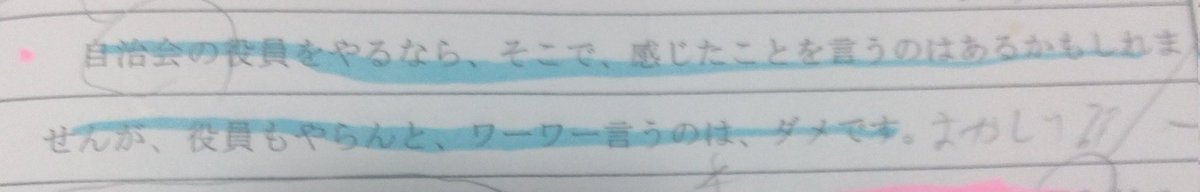 自治会の役員をやるなら、そこで、感じたことを言うのはあるかもしれま
せんが、役員もやらんと、ワーワー言うのは、ダメです。